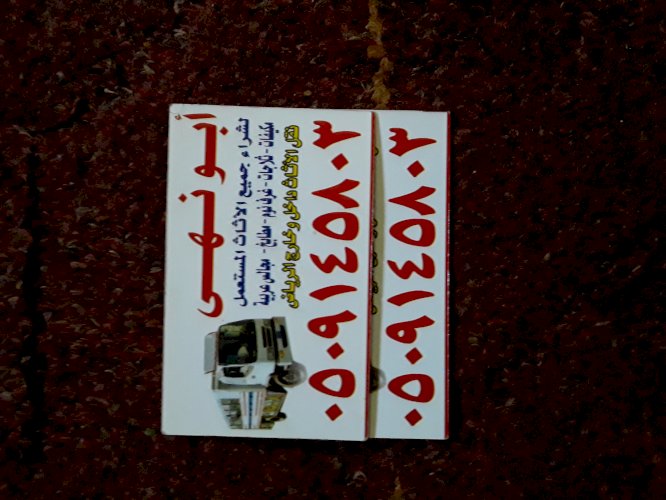 أبو نهى
لشراء جميع الأثاث المستعمل
مكيفات - ثلاجات - غرف نوم - مطابخ - مجالس عربية
نقل الأثاث داخل وخارج الرياض
٠٥٠٩١٤٥٨٠٣
٠٥٠٩١٤٥٨٠٣